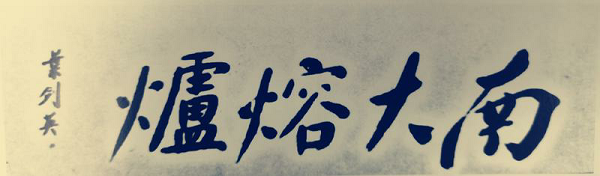 南大熔爐
葉列英